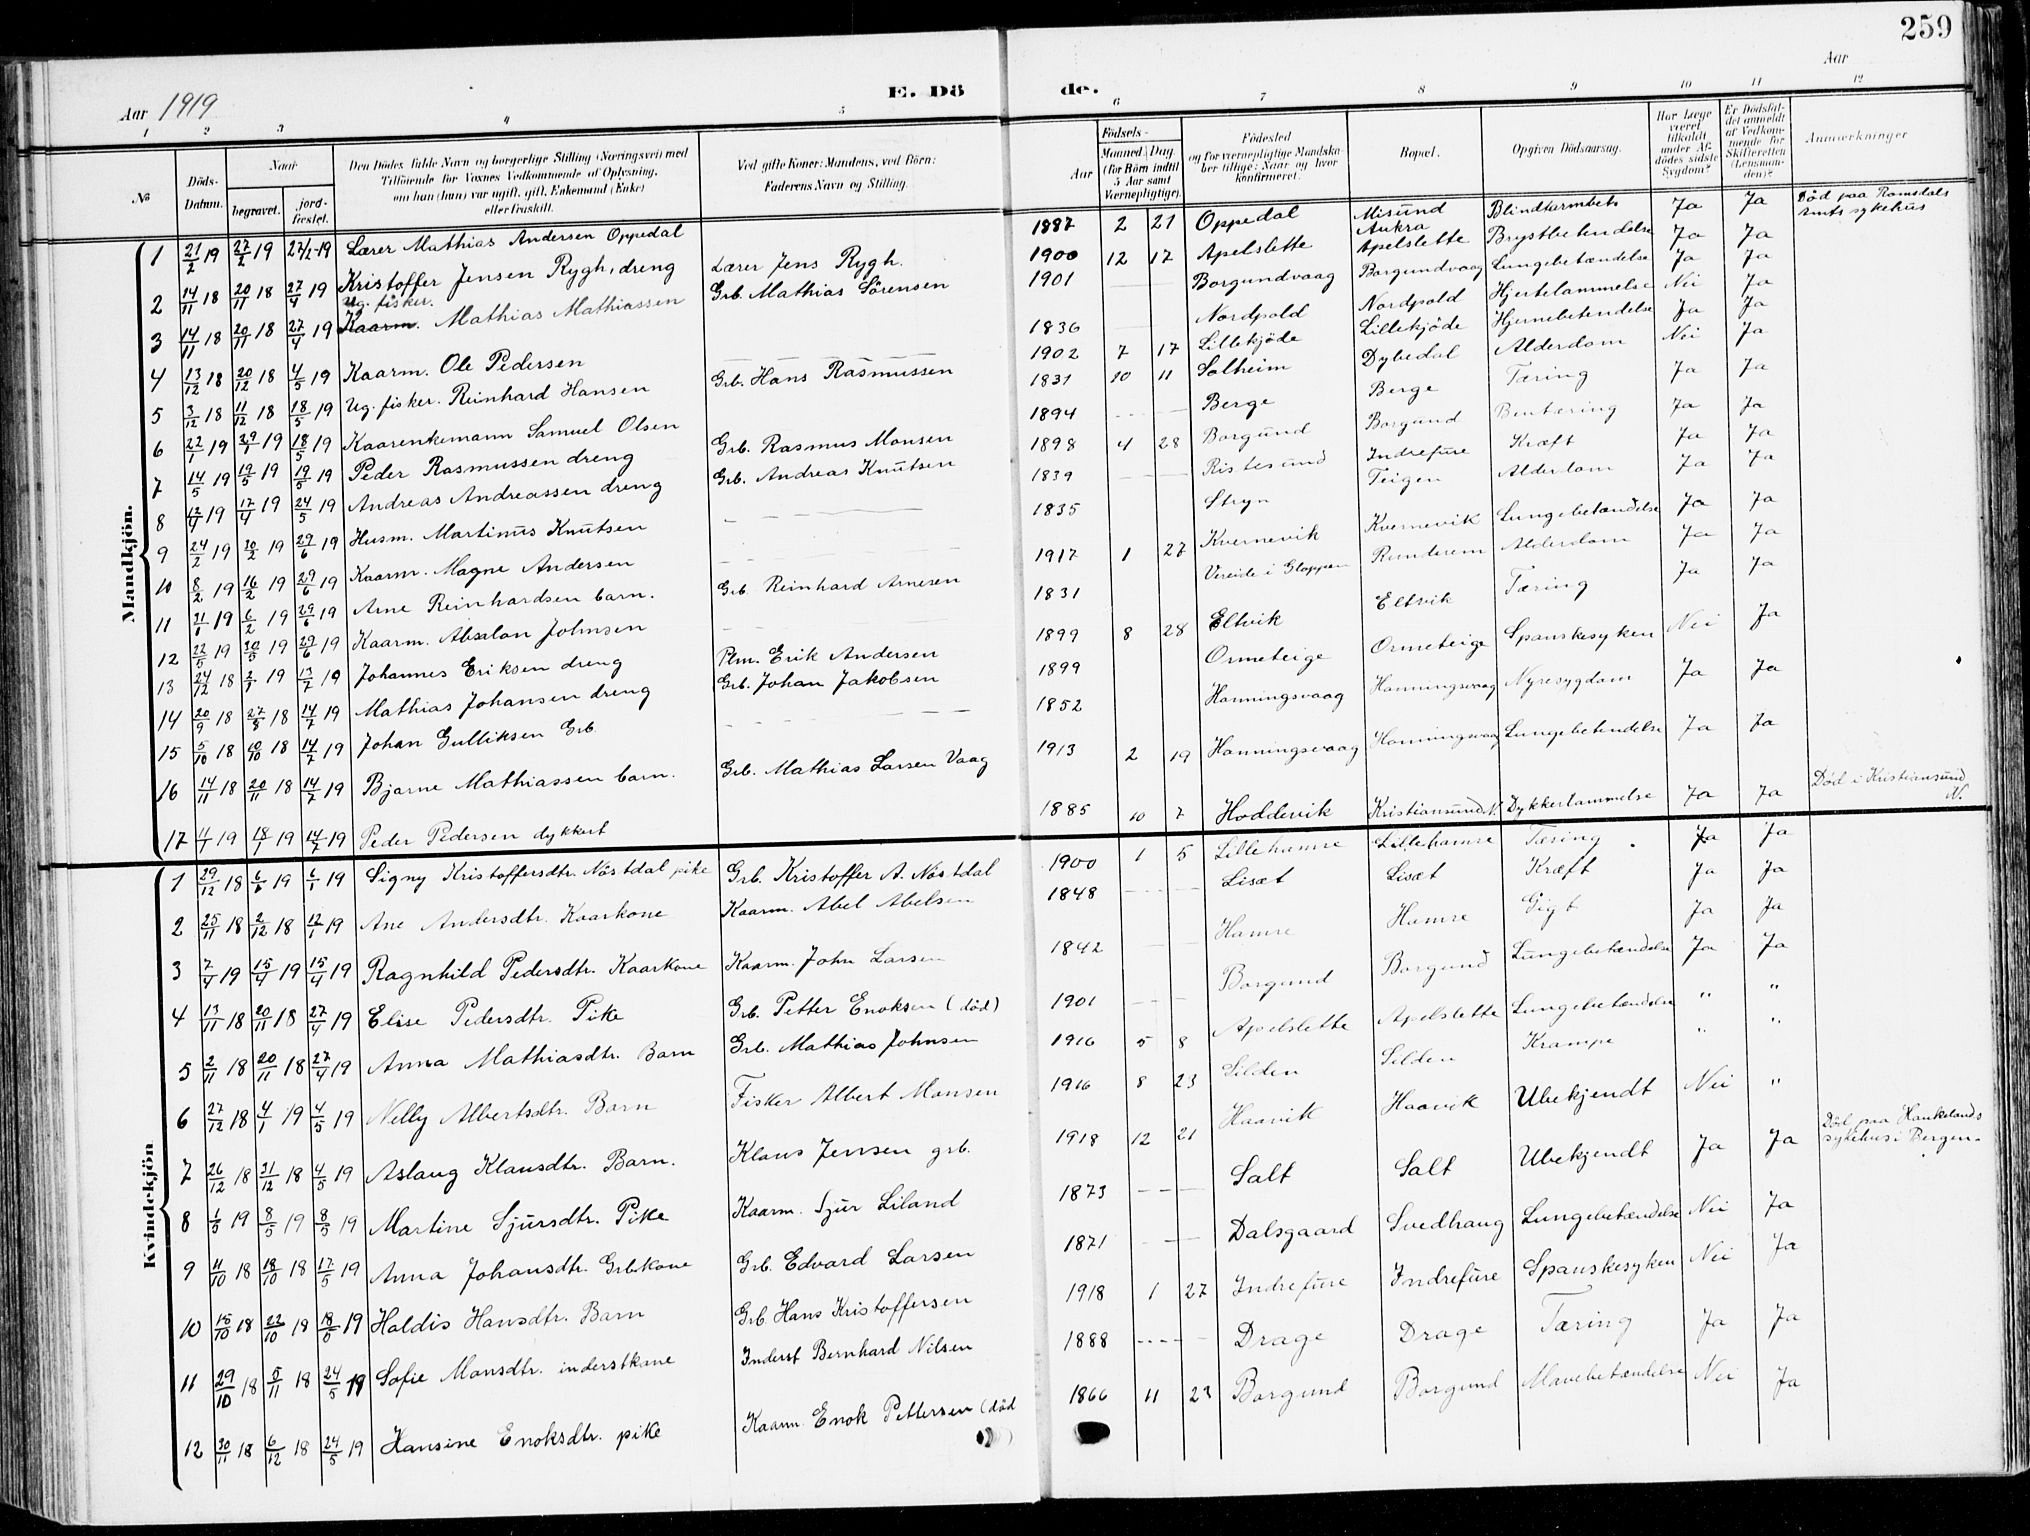 259
Aar 1919
E. Dö de.
Aar
1 2 3 4 5 6 7 8 9 10 11 12
№
Döds-Datum.
Naar
begravet.
jord-fæstet.
Den Dödes fulde Navn og borgerlige Stilling (Næringsvei) med Tilföiende for Voxnes Vedkommende af Oplysning, om han (hun) var ugift, gift, Enkemand (Enke) eller fraskilt.
Ved gifte Koner: Mandens, ved Börn: Faderens Navn og Stilling.
Aar
Födsels-
Maaned. Dag
(for Börn indtil 5 Aar samt Værnepligtige).
Födested og for værnepligtige Mandskaber tillige: Naar og hvor konfirmeret.
Bopæl.
Opgiven Dödsaarsag.
Har Læge været tilkaldt under Afdödes sidste Sygdom?
Er Dödsfaldet anmeldt af Vedkommende for Skifteretten (Lensmanden)?
Anmærkninger
Mandkjön.
1 21/2 19 27/2 19 27/2-19 Lærer Mathias Andersen Oppedal 1887 2 21 Oppedal Misund Aukra Blindtarmbet. Ja Ja Död paa Romsdals amts sykehus
2 14/11 18 20/11 18 27/4 19 Kristoffer Jensen Rygh, dreng Lærer Jens Rygh. 1900 12 17 Apelslette Apelslette Brystbetendelse Ja Ja
3 14/11 18 20/11 18 27/4 19 Ug. fisker. Kaarm. Mathias Mathiassen Grb. Mathias Sörensen 1901 — — Borgundvaag Borgundvaag Lungebetændelse Ja Ja
4 13/12 18 20/12 18 4/5 19 Kaarm. Ole Pedersen — — — 1836 — — Nordpold Nordpold Hjertelammelse Nei Ja
5 3/12 18 11/12 18 18/5 19 Ug. fisker. Reinhard Hansen Grb. Hans Rasmussen 1902 7 17 Lillekjöde Lillekjöde Hjernebetendelse Ja Ja
6 22/1 19 29/1 19 18/5 19 Kaarenkemann Samuel Olsen 1831 10 11 Solheim Dybedal Alderdom Nei Ja
7 14/5 19 19/5 19 19/5 19 Peder Rasmussen dreng Grb. Rasmus Monsen 1894 — — Berge Berge Tæring Ja Ja
8 12/4 19 17/4 19 24/5 19 Andreas Andreassen dreng Grb. Andreas Knutsen 1898 4 28 Borgund Borgund Bentæring Ja Ja
9 24/2 19 30/2 19 29/6 19 Husm. Martinus Knutsen — — — 1839 — — Ristesund Indrefure Kræft Ja Ja
10 8/2 19 16/2 19 29/6 19 Kaarm. Magne Andersen — — 1835 Stryn Teigen Alderdom Ja Ja
11 31/1 19 6/2 19 29/6 19 Arne Reinhardsen barn. Grb. Reinhard Arnesen 1917 1 27 Kvernevik Kvernevik Lungebetændelse Ja Ja
12 22/5 19 30/5 19 29/6 19 Kaarm. Absalon Johnsen — — 1831 Vereide i Gloppen Runderem Alderdom Ja Ja
13 24/12 18 2/1 19 13/7 19 Johannes Eriksen dreng Plm. Erik Andersen 1899 8 28 Eltvik Eltvik Tæring Ja Ja
14 20/9 18 27/8 18 14/7 19 Mathias Johansen dreng Grb. Johan Jakobsen 1899 Ormeteige Ormeteige Spanskesyken Nei Ja
15 5/10 18 10/10 18 14/7 19 Johan Gulliksen Grb — — — 1852 Honningsvaag Honningsvaag Nyresygdom Ja Ja
16 14/11 18 20/11 18 14/7 19 Bjarne Mathiassen barn. Grb. Mathias Larsen Vaag 1913 2 19 Honningsvaag Honningsvaag Lungebetendelse Ja Ja
17 11/1 19 18/1 19 14/7 19 Peder Pedersen dykkert 1885 10 7 Hoddevik Kristiansund N. Dykkerlammelse Ja Ja Död i Kristiansund N.
Kvindekjön
1 29/12 18 6/1 19 6/1 19 Signy Kristoffersdtr. Nöstdal pike Grb. Kristoffer A. Nöstdal 1900 1 5 Lillehamre Lillehamre Tæring Ja Ja
2 25/11 18 2/12 18 12/1 19 Ane Andersdtr. Kaarkone Kaarm. Abel Abelsen 1848 — — Liset Liset Kræft Ja Ja
3 7/4 19 15/4 19 15/4 19 Ragnhild Pedersdtr. Kaarkone Kaarm. John Larsen 1842 — — Hamre Hamre Gigt Ja Ja
4 13/11 18 20/11 18 27/4 19 Elise Pedersdtr. Pike Grb. Petter Enoksen (död) 1901 — — Borgund Borgund Lungebetændelse Ja Ja
5 2/11 18 20/11 18 27/4 19 Anna Mathiasdtr. Barn Grb. Mathias Johnsen 1916 5 8 Apelslette Apelslette Lungebetændelse " "
6 27/12 18 4/1 19 4/5 19 Nelly Albertsdtr. Barn Fisker Albert Monsen 1916 8 23 Silden Silden Krampe " "
7 26/12 18 31/12 18 4/5 19 Aslaug Klausdtr. Barn. Klaus Jensen grb. 1918 12 21 Haavik Haavik Ubekjendt Nei "
8 1/5 19 8/5 19 8/5 19 Martine Sjursdtr. Pike Kaarm. Sjur Liland 1873 — — Salt Salt Ubekjendt Ja Ja Död paa Haukelands sykehus i Bergen.
9 11/10 18 18/10 18 17/5 19 Anna Johansdtr. Grbkone Grb. Edvard Larsen 1871 — — Dalsgaard Svedhaug Lungebetændelse Nei Ja
10 15/10 18 22/10 18 18/5 19 Haldis Hansdtr. Barn Grb Hans Kristoffersen 1918 1 27 Indrefure Indrefure Spanskesyken Nei Ja
11 29/10 18 5/11 18 24/5 19 Sofie Monsdtr. inderstkone Inderst Bernhard Nilsen 1888 — — Drage Drage Tæring Ja Ja
12 30/11 18 6/12 18 24/5 19 Hansine Enoksdtr. pike Kaarm. Enok Pettersen (död 1866 11 23 Borgund Borgund Mavebetændelse Nei Ja